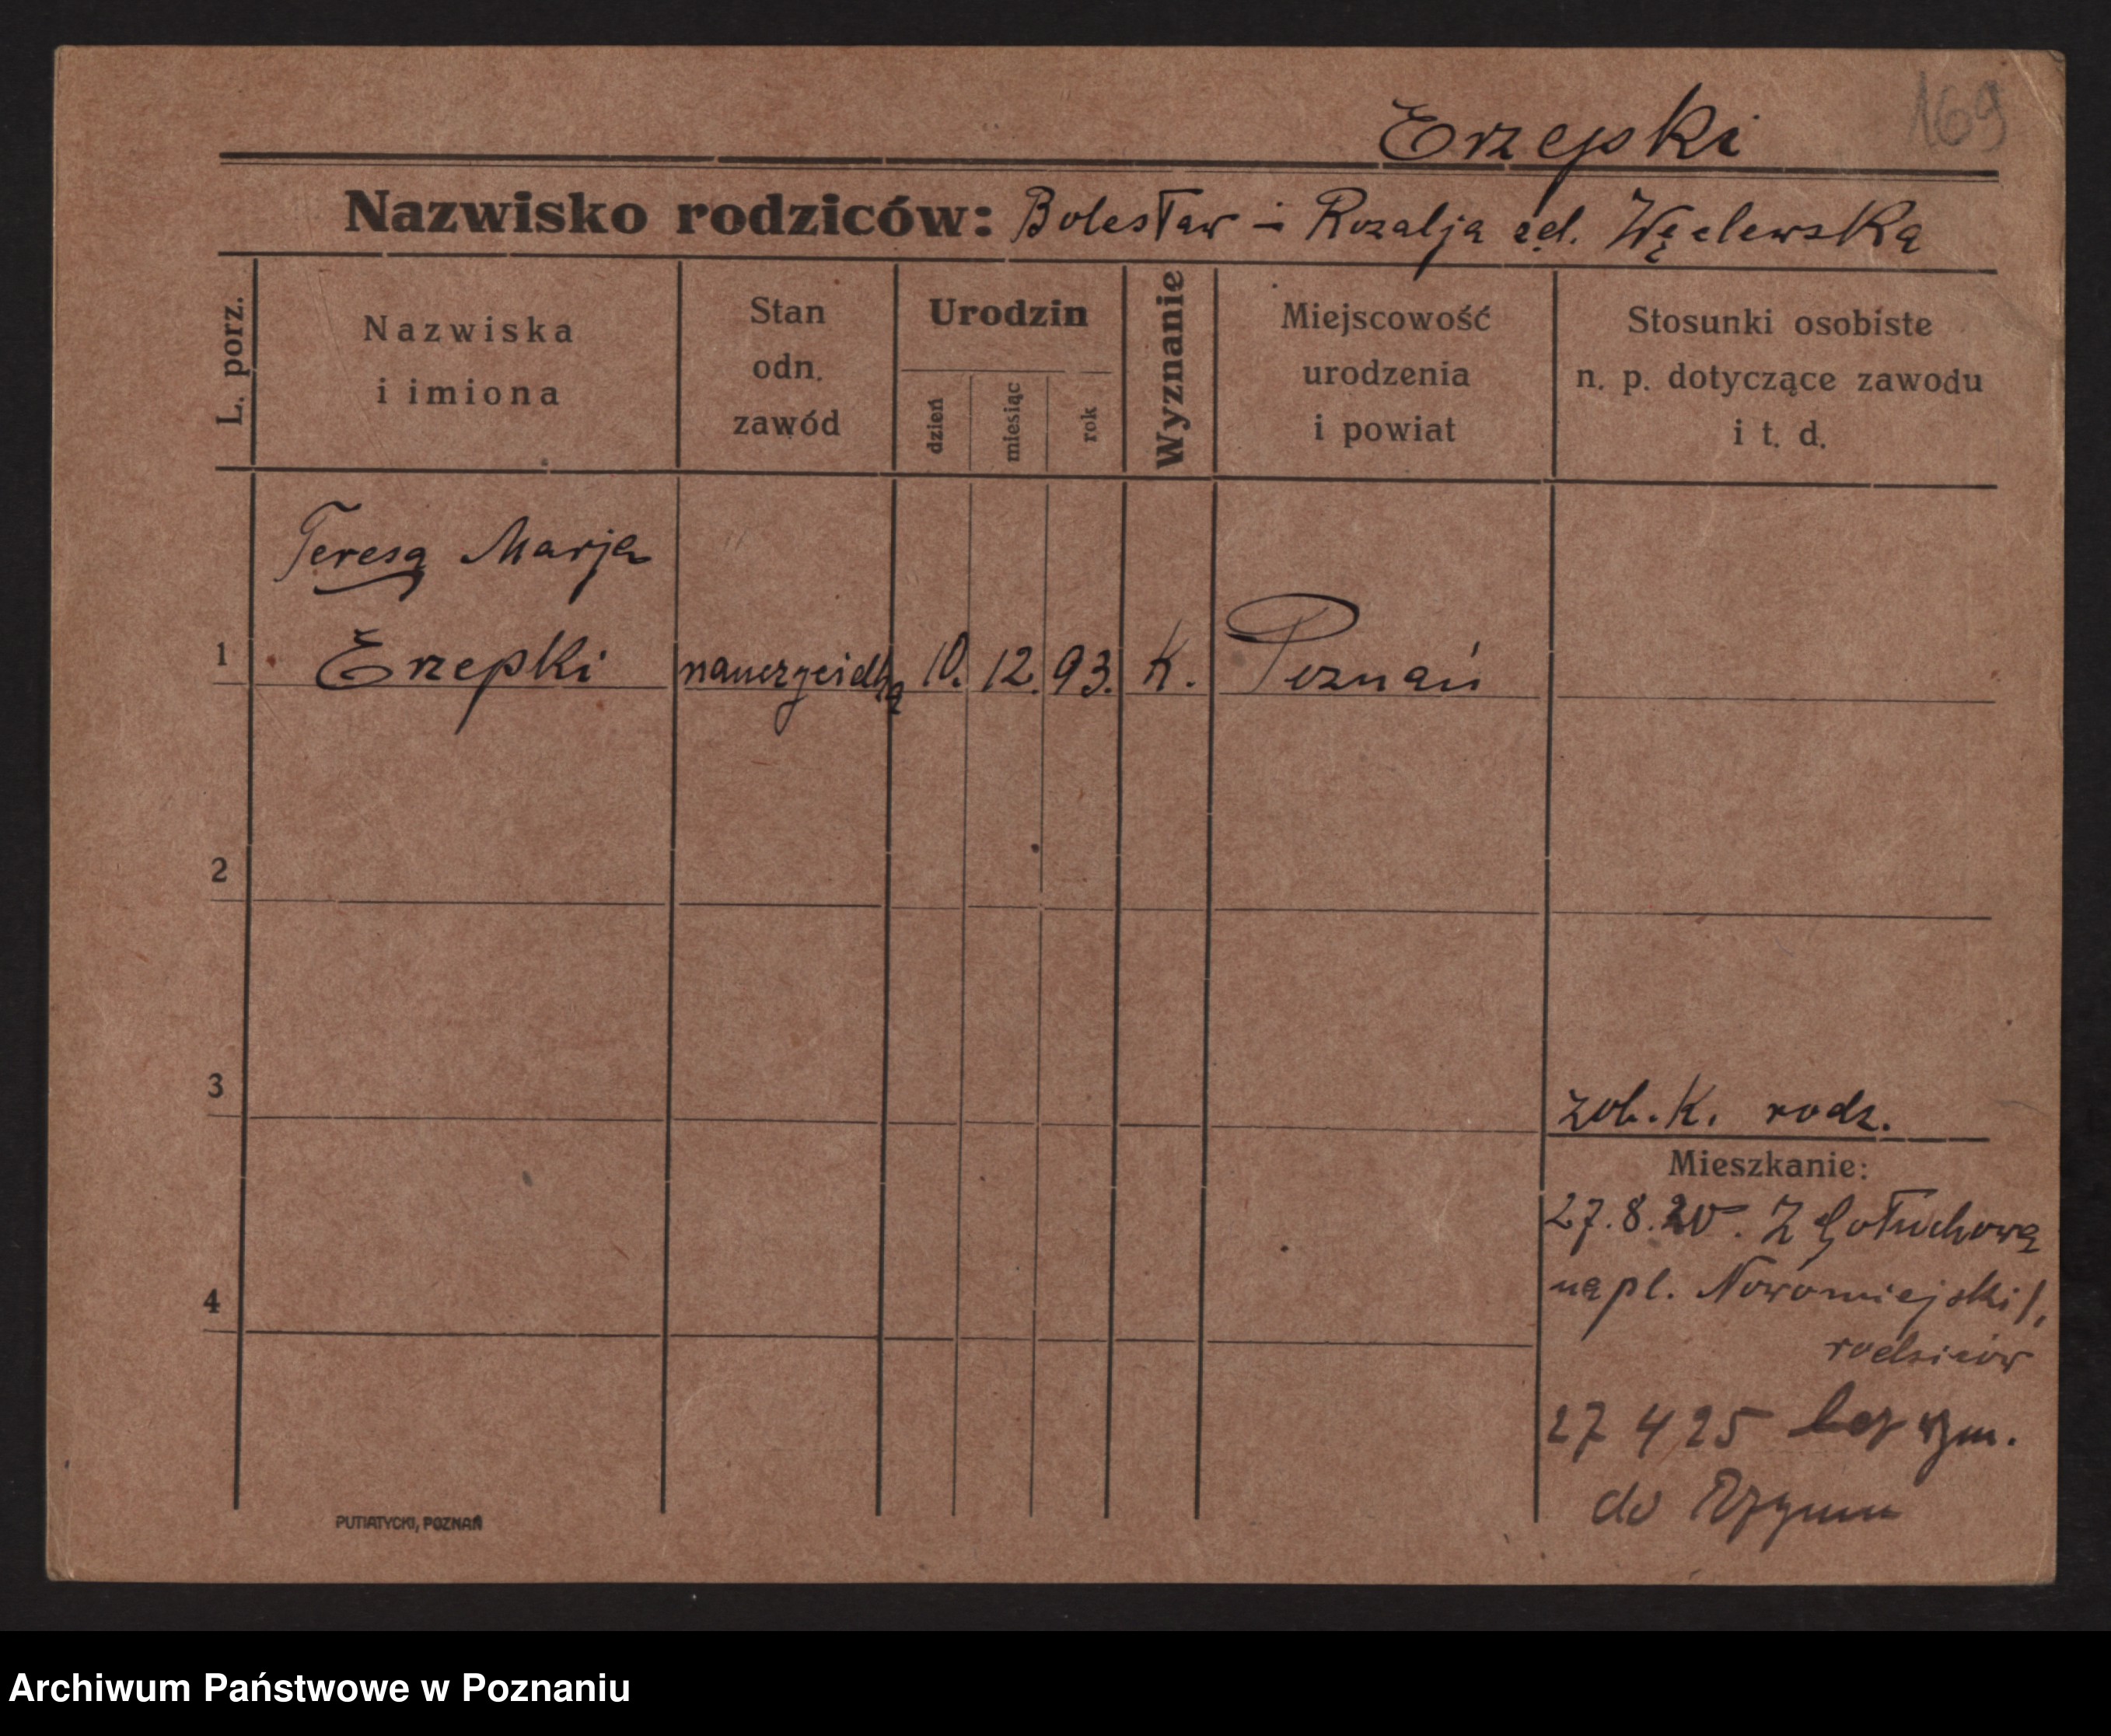 169
Erzepki
Nazwisko rodziców: Bolesław i Rozalja zd. Węclewska
L. porz.
Nazwiska
i imiona
Stan
odn.
zawód
Urodzin
dzień
miesiąc
rok
Wyznanie
Miejscowość
urodzenia
i powiat
Stosunki osobiste
n. p. dotyczące zawodu
i t. d.
Teresa Marja
1 Erzepki 10. 12. 93. K. Poznań
2
3
zob. K. rodz.
Mieszkanie:
27.8.20. Z Gołuchowa
na pl. Nowomiejski 1,
4
rodziców
27 4 25 bez wym.
do Rzymu
PUTIATYCKI, POZNAŃ
Archiwum Państwowe w Poznaniu